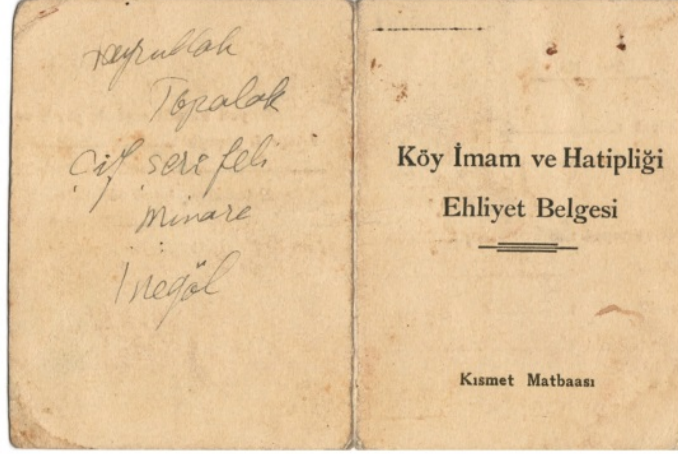 Hayrullah
Topalak
Çif şerefeli
minare
İnegöl
Köy İmam ve Hatipliği
Ehliyet Belgesi
Kısmet Matbaası